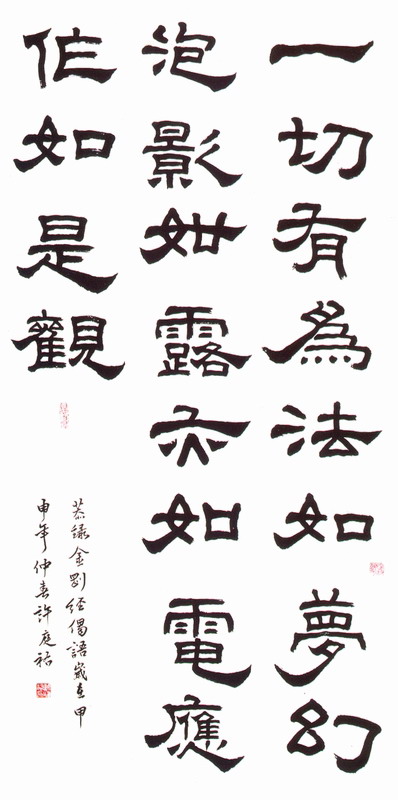 一切有為法如夢幻
泡影如露亦如電應
作如是觀
恭録金剛經偈語歲在甲
申年仲春許庭祐